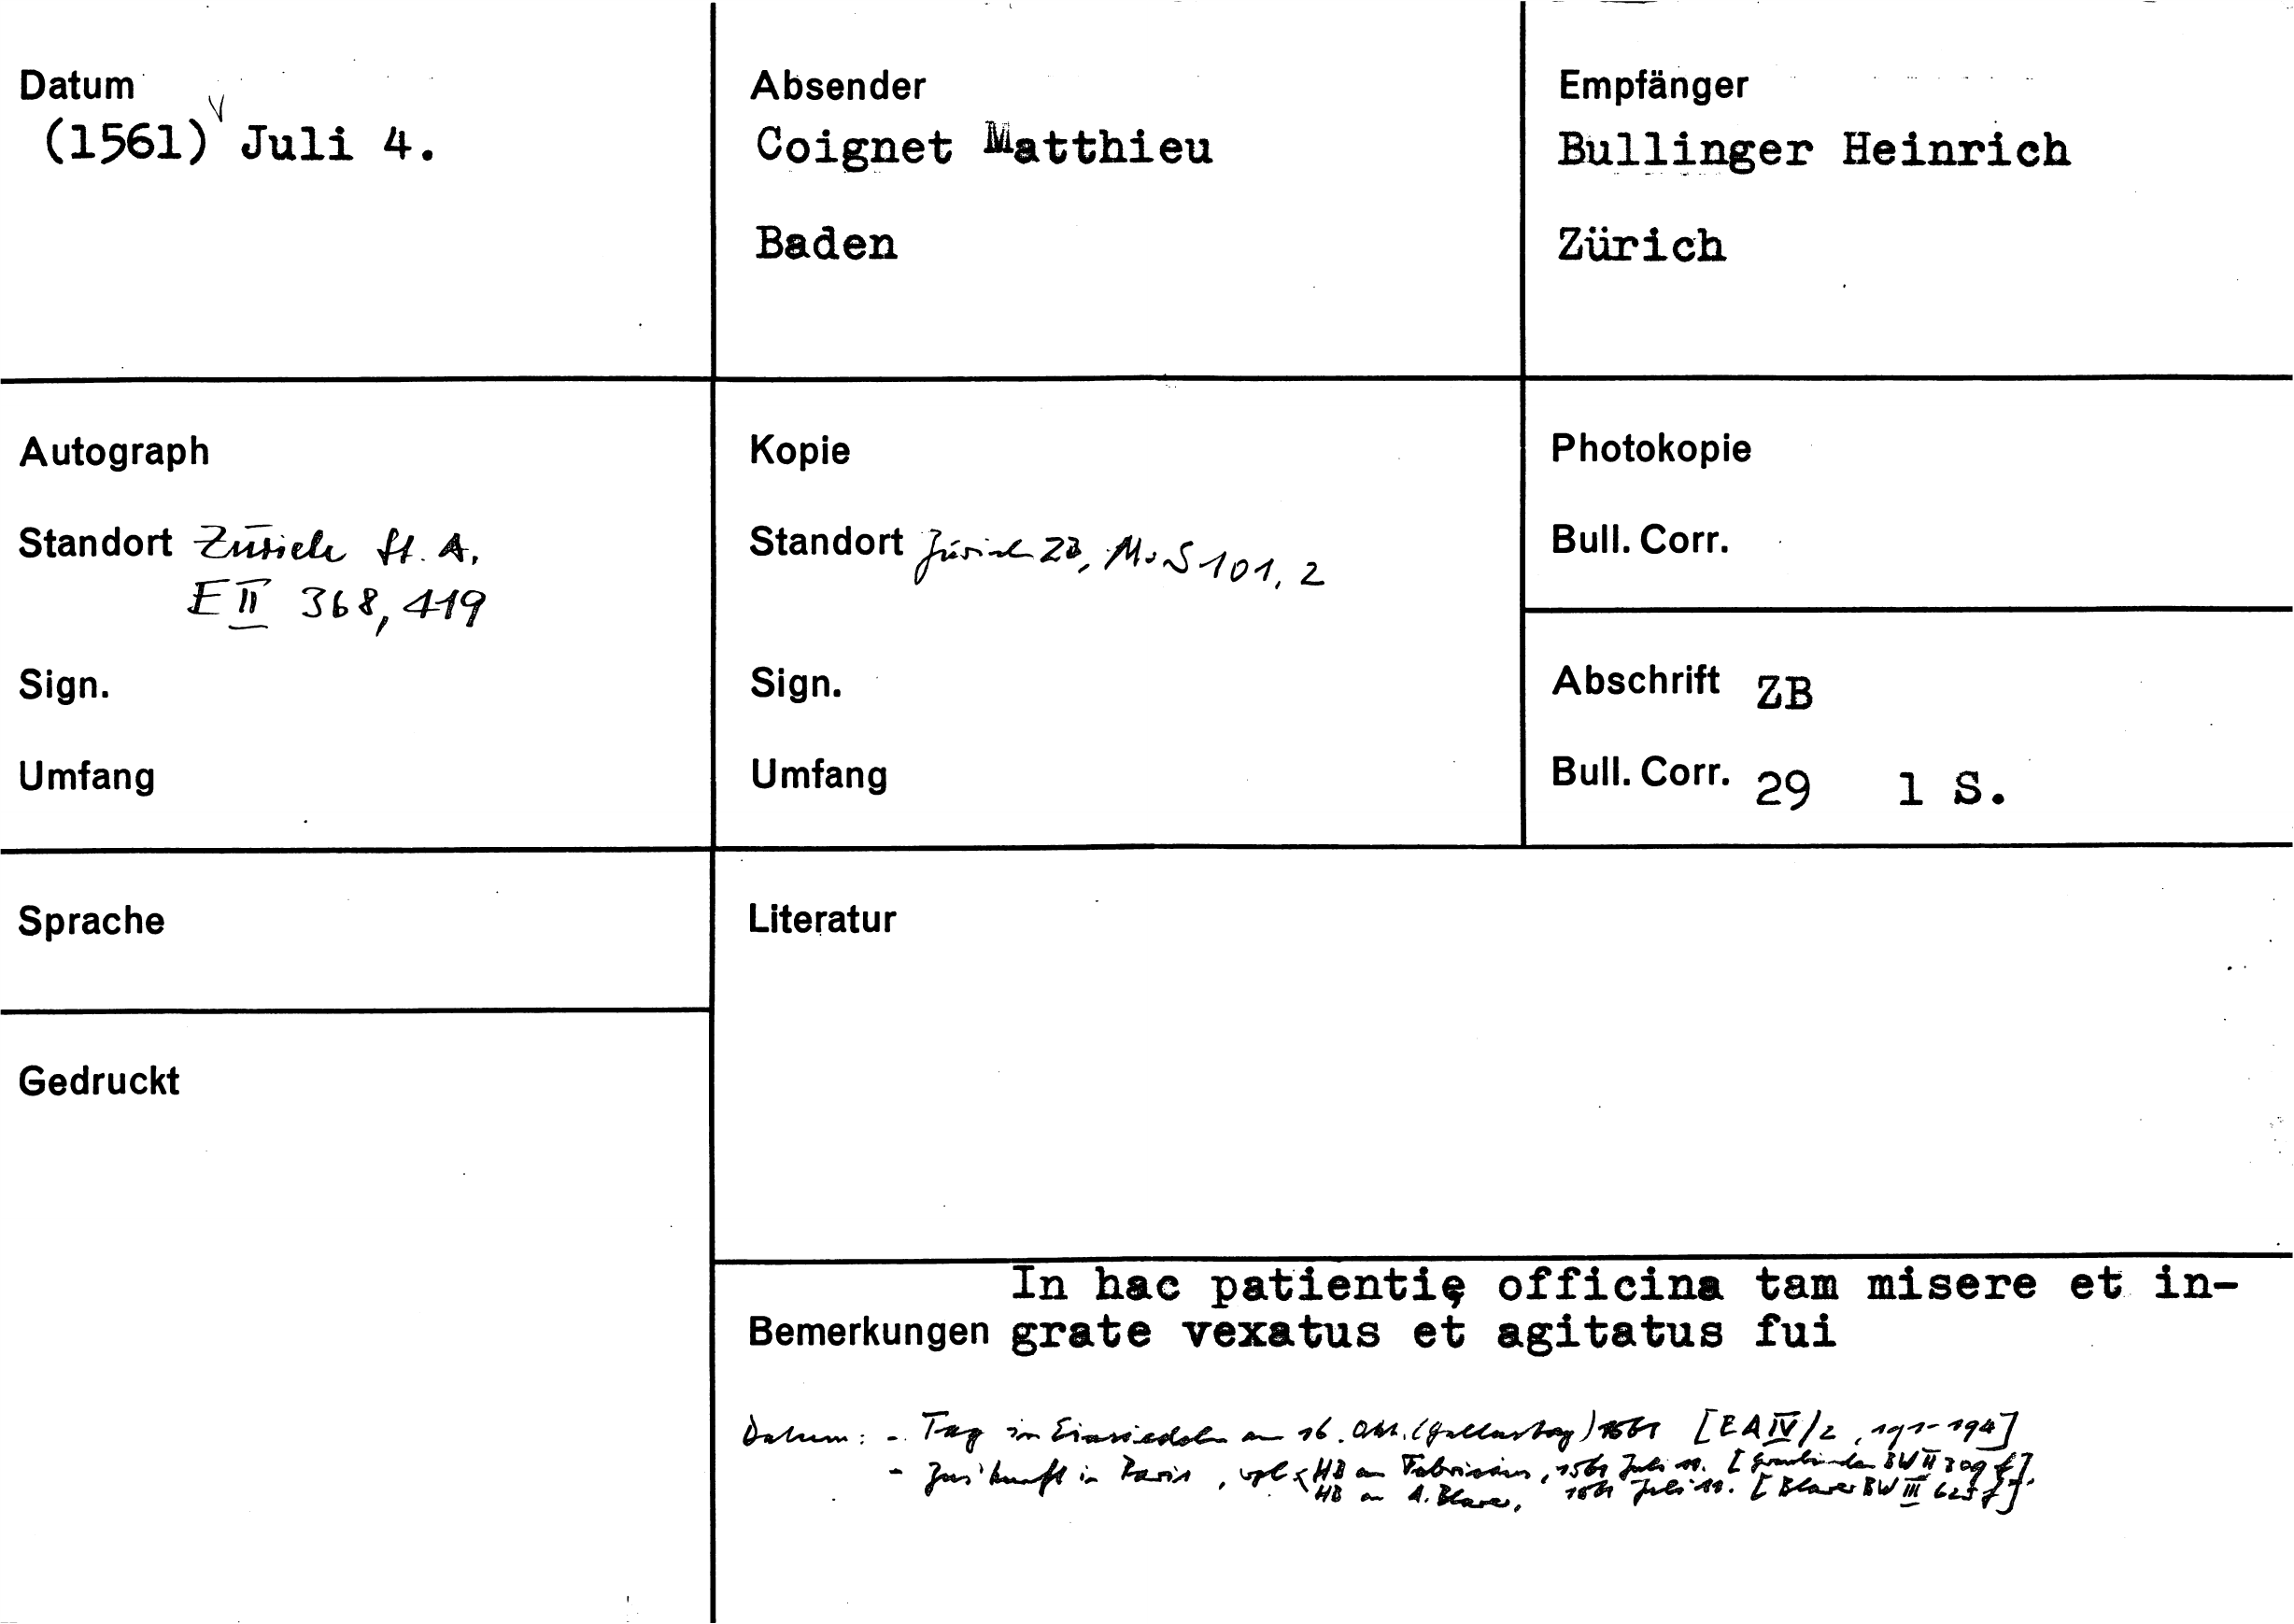 Datum
(1561) Juli 4.
Absender
Coignet Matthieu
Baden
Empfänger
Bullinger Heinrich
Zürich
Autograph
Standort Zürich St. A.
E II 368, 419
Sign.
Umfang
Kopie
Standort Zürich ZB, Ms S 101, 2
Sign.
Umfang
Photokopie
Bull. Corr.
Abschrift ZB
Bull. Corr. 29 1 S.
Sprache
Literatur
Gedruckt
In hac patientię officina tam misere et in-
Bemerkungen grate vexatus et agitatus fui
Datum: - Tag in Einsiedeln am 16. Okt. (Gallustag) 1561 [EA IV/2, 191-194]
- Zus'kunft in Paris, vgl. HB an Fabricius, 1561 Juli 11. [Graubünden BW II 309 f].
HB an A. Blarer, 1561 Juli 11. [Blarer BW III 625 f].